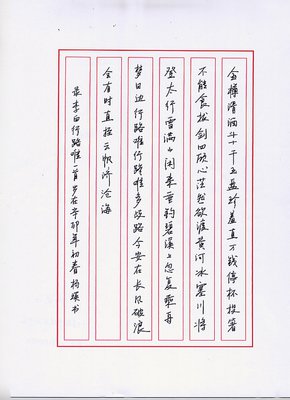 金樽清酒斗十千玉盘珍羞直万钱停杯投箸
不能食拔剑四顾心茫然欲渡黄河冰塞川将
登太行雪满山闲来垂钓碧溪上忽复乘舟
梦日边行路难行路难多歧路今安在长风破浪
会有时直挂云帆济沧海
录李白行路难一首岁在辛卯年初春杨瑛书